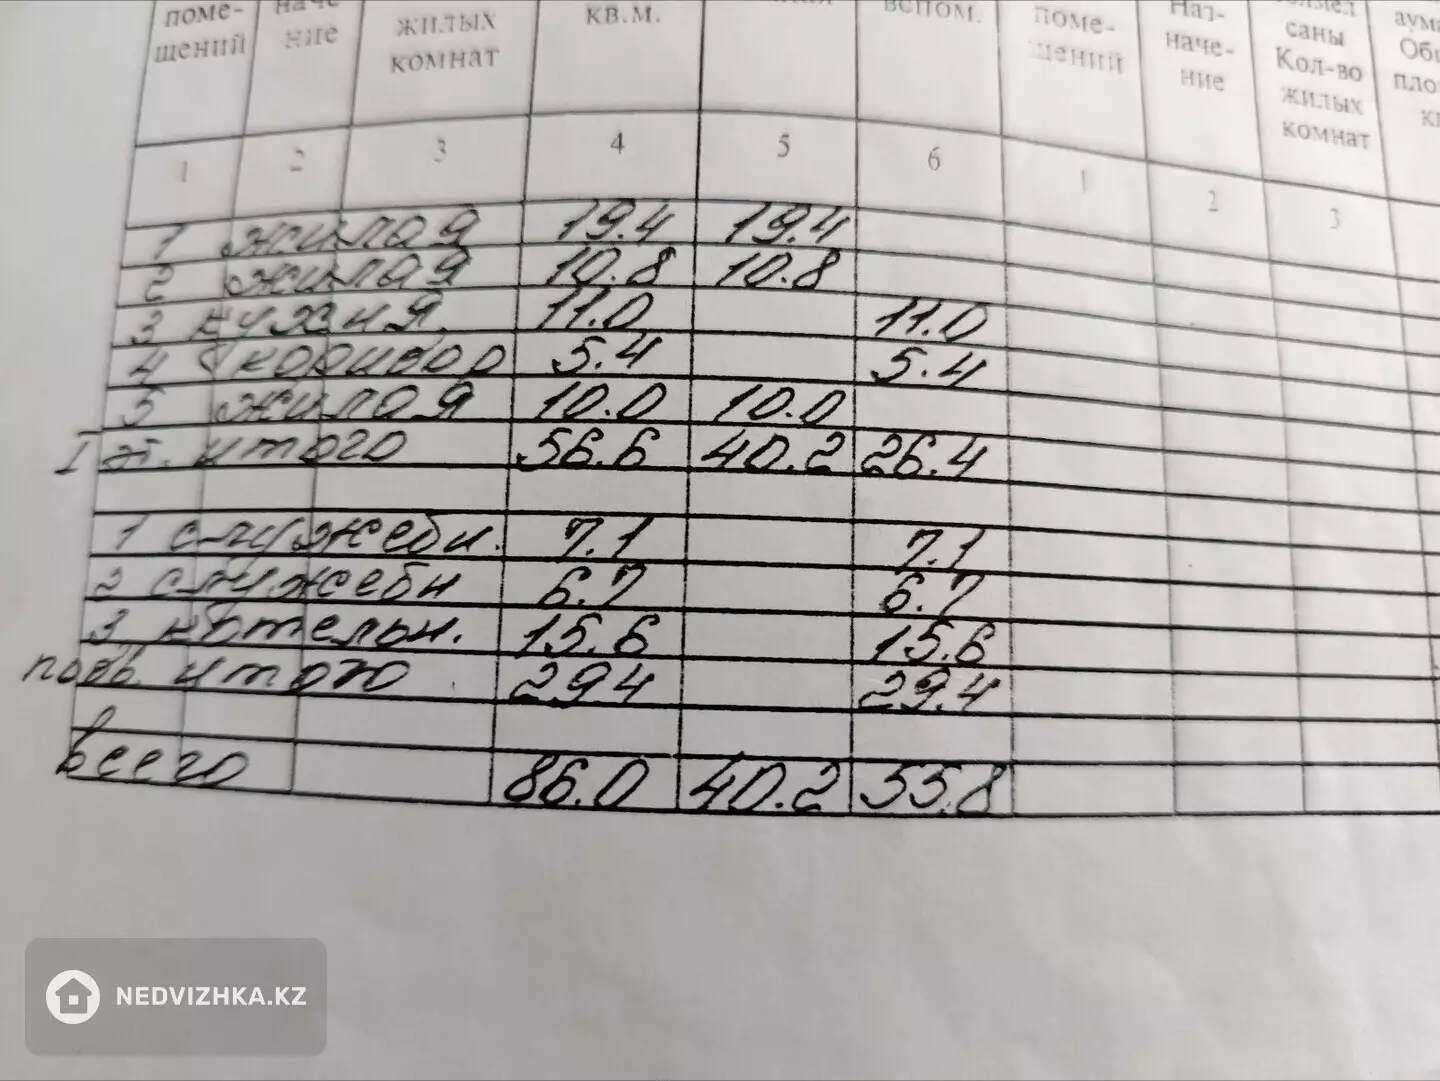 поме- жилых кв.м. вспом. поме- Наз- саны
щений ние комнат щений наче- Кол-во
ние жилых
комнат
1 2 3 4 5 6 1 2 3
1 жилая 19.4 19.4
2 жилая 10.8 10.8
3 кухня 11.0 11.0
4 коридор 5.4 5.4
5 жилая 10.0 10.0
I эт. итого 56.6 40.2 26.4
1 служебн. 7.1 7.1
2 служебн 6.7 6.7
3 котельн. 15.6 15.6
подв. итого 29.4 29.4
всего 86.0 40.2 55.8
NEDVIZHKA.KZ